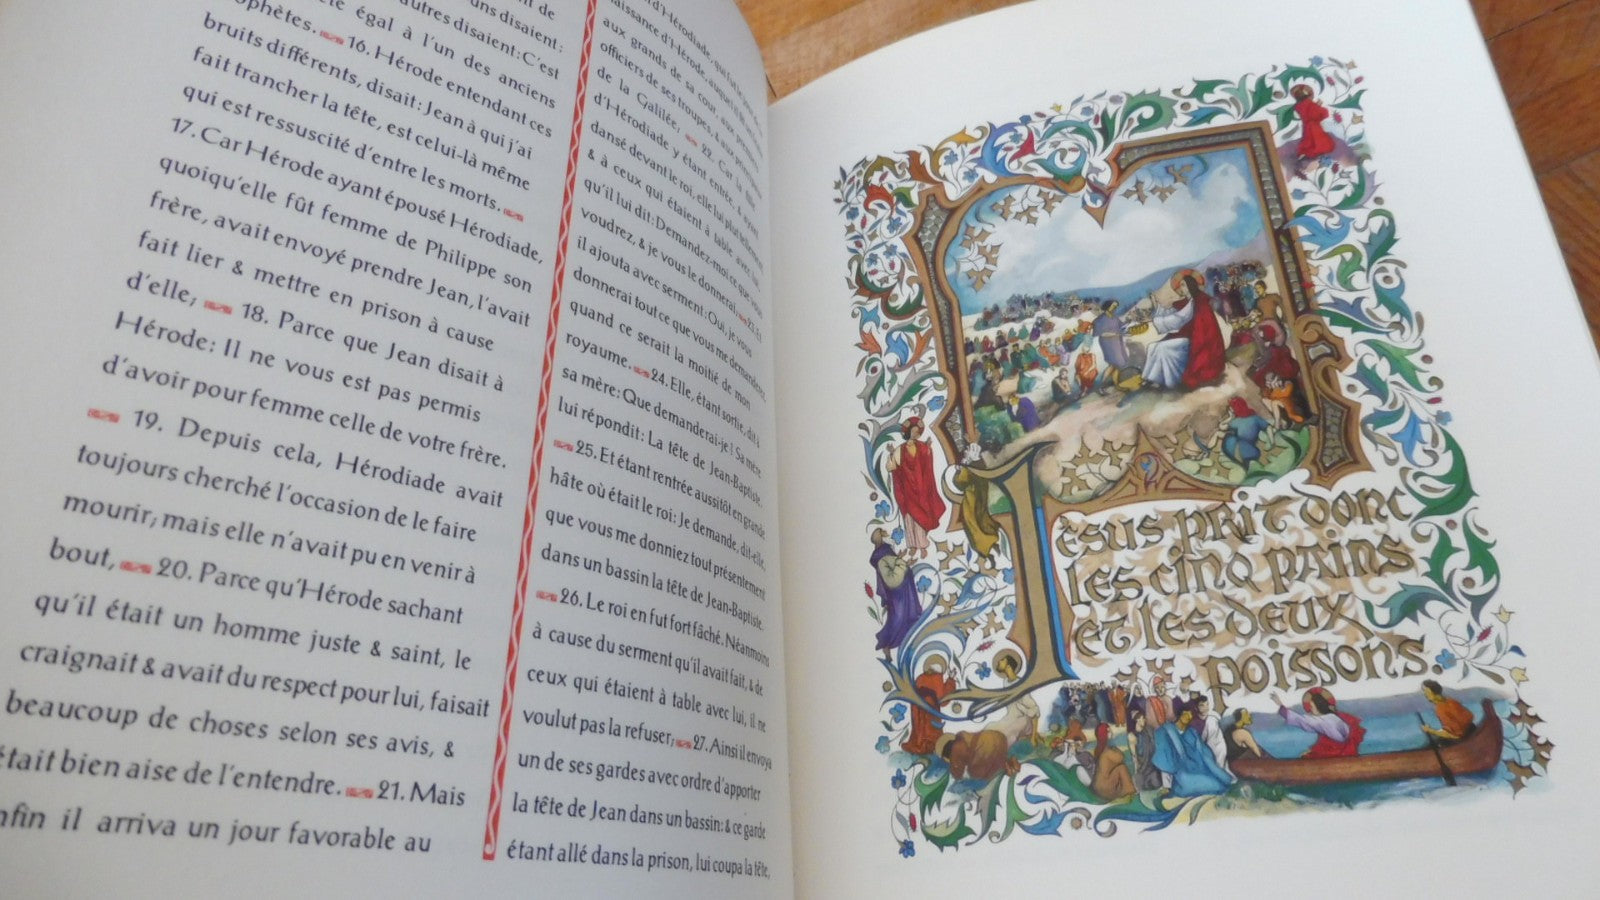 nt de
uns disaient:
autres disaient: C'est
égal à l'un des anciens
ophètes. 16. Hérode entendant ces
bruits différents, disait: Jean à qui j'ai
fait trancher la tête, est celui-là même
qui est ressuscité d'entre les morts.
17. Car Hérode ayant épousé Hérodiade,
quoiqu'elle fût femme de Philippe son
frère, avait envoyé prendre Jean, l'avait
fait lier & mettre en prison à cause
d'elle, 18. Parce que Jean disait à
Hérode: Il ne vous est pas permis
d'avoir pour femme celle de votre frère.
19. Depuis cela, Hérodiade avait
toujours cherché l'occasion de le faire
mourir, mais elle n'avait pu en venir à
bout, 20. Parce qu'Hérode sachant
qu'il était un homme juste & saint, le
craignait & avait du respect pour lui, faisait
beaucoup de choses selon ses avis, &
était bien aise de l'entendre. 21. Mais
nfin il arriva un jour favorable au
naissance d'Hérode, auquel il
aux grands de sa cour, aux premiers
officiers de ses troupes, & aux principaux
de la Galilée, 22. Car la fille
d'Hérodiade y étant entrée, & ayant
dansé devant le roi, elle lui plut tellement
& à ceux qui étaient à table avec lui,
qu'il lui dit: Demandez-moi ce que vous
voudrez, & je vous le donnerai, 23. Et
il ajouta avec serment: Oui, je vous
donnerai tout ce que vous me demanderez,
quand ce serait la moitié de mon
royaume. 24. Elle, étant sortie, dit à
sa mère: Que demanderai-je? Sa mère
lui répondit: La tête de Jean-Baptiste.
25. Et étant rentrée aussitôt en grande
hâte où était le roi: Je demande, dit-elle,
que vous me donniez tout présentement
dans un bassin la tête de Jean-Baptiste.
26. Le roi en fut fort fâché. Néanmoins
à cause du serment qu'il avait fait, & de
ceux qui étaient à table avec lui, il ne
voulut pas la refuser; 27. Ainsi il envoya
un de ses gardes avec ordre d'apporter
la tête de Jean dans un bassin: & ce garde
étant allé dans la prison, lui coupa la tête,
Jésus prit donc
les cinq pains
et les deux
poissons.